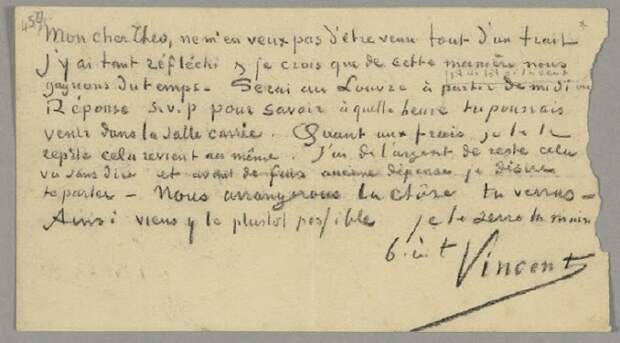 459
Mon cher Theo, ne m'en veux pas d'être venu tout d'un trait
j'y ai tant réfléchi & je crois que de cette manière nous
gagnons du temps. Serai au Louvre à partir de midi ou
plus tôt si tu veux
Réponse s.v.p pour savoir à quelle heure tu pourrais
venir dans la salle carrée. Quant aux frais je te le
repète cela revient au même. J'ai de l'argent de reste cela
va sans dire et avant de faire aucune dépense je désire
te parler – Nous arrangerons la chôse tu verras –
Ainsi viens y le plustot possible je te serre la main
b. à t
Vincent